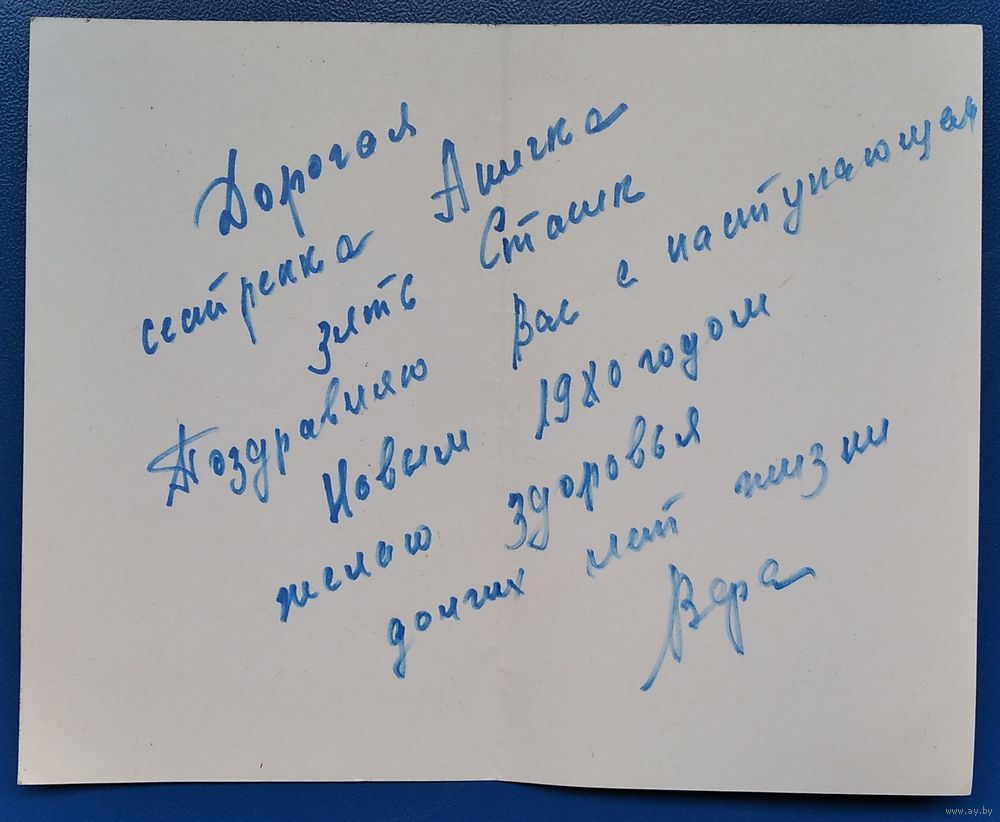 Дорогая
сестренка Аничка
зять Сташк
Поздравляю Вас с наступающем
Новым 1980 годом
желаю здоровья
долгих лет жизни
Вера
www.ay.by